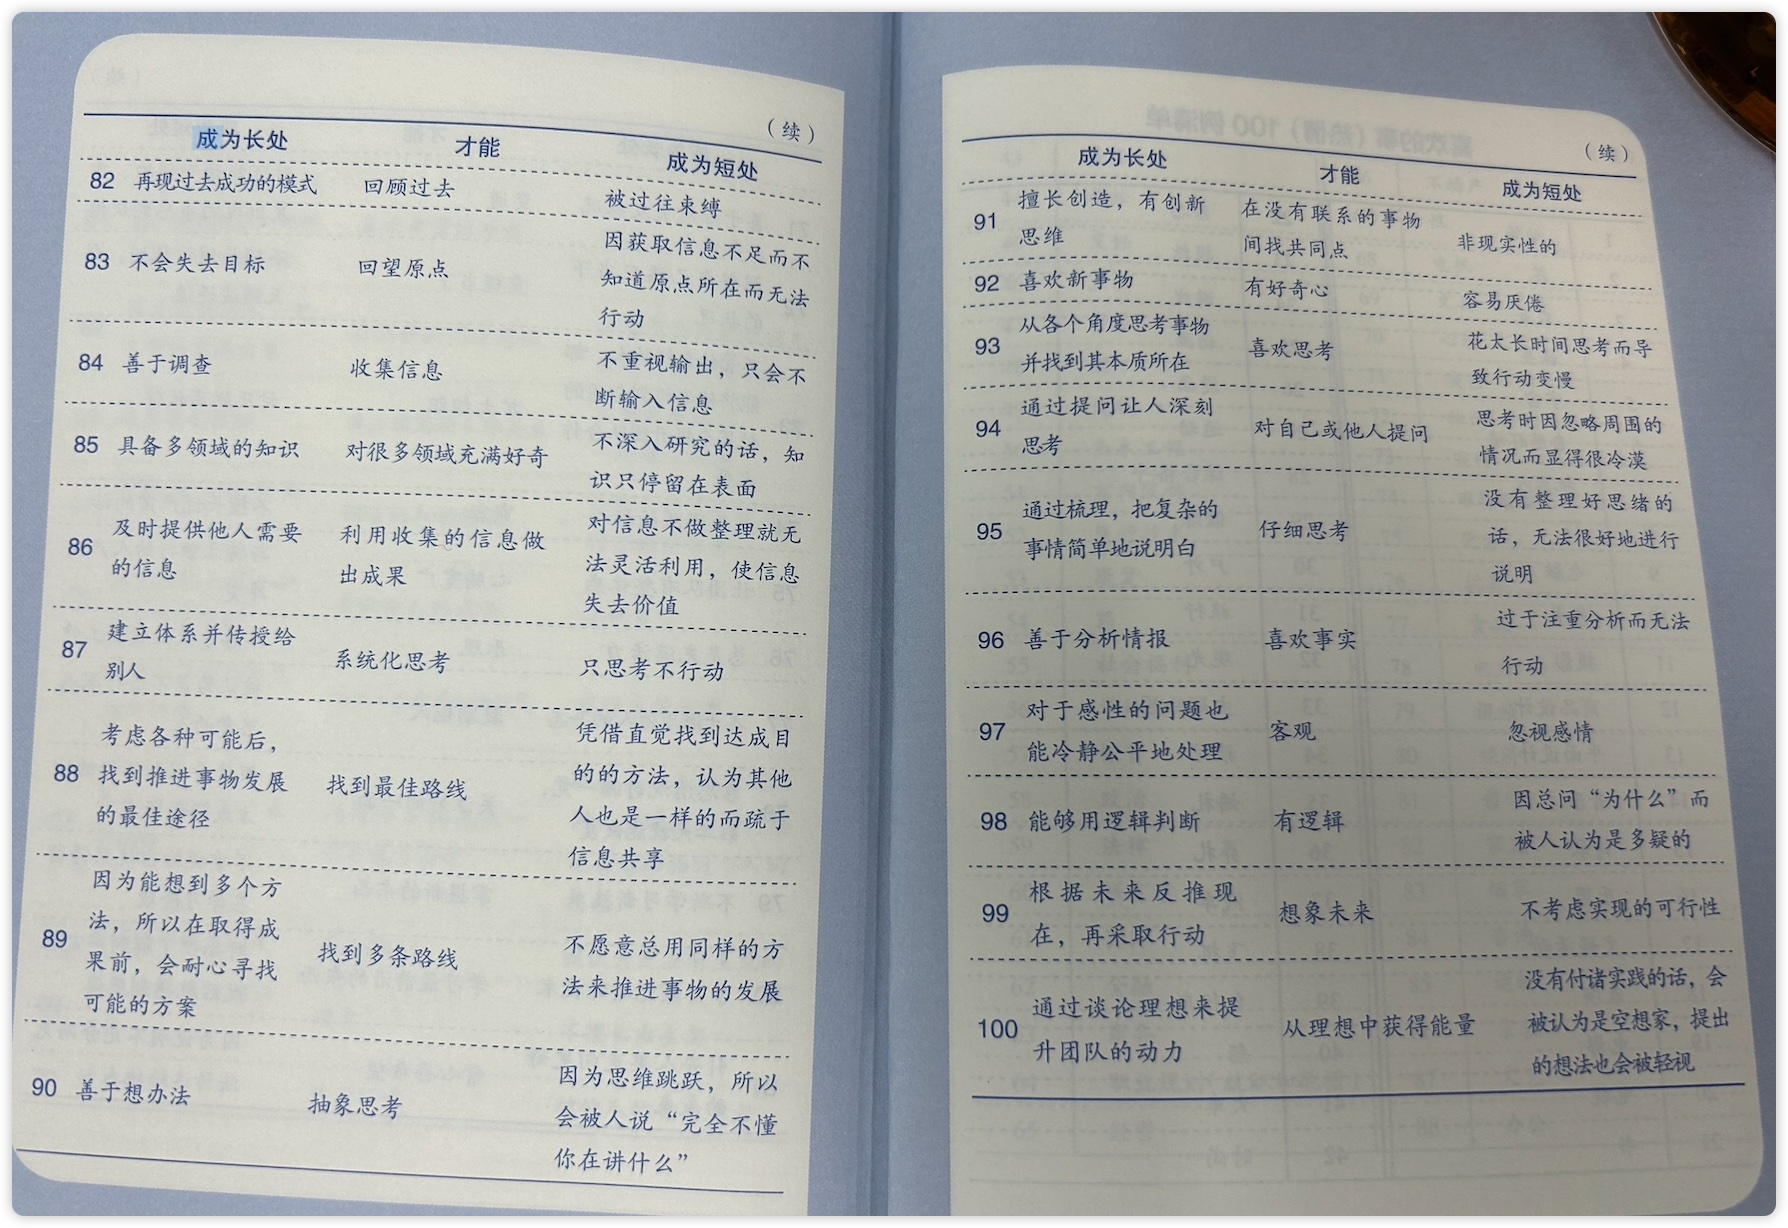 （续）
成为长处 才能 成为短处
82 再现过去成功的模式 回顾过去 被过往束缚
83 不会失去目标 回望原点 因获取信息不足而不
知道原点所在而无法
行动
84 善于调查 收集信息 不重视输出，只会不
断输入信息
85 具备多领域的知识 对很多领域充满好奇 不深入研究的话，知
识只停留在表面
86 及时提供他人需要 利用收集的信息做 对信息不做整理就无
的信息 出成果 法灵活利用，使信息
失去价值
87 建立体系并传授给 系统化思考 只思考不行动
别人
88 考虑各种可能后， 找到最佳路线 凭借直觉找到达成目
找到推进事物发展 的的方法，认为其他
的最佳途径 人也是一样的而疏于
信息共享
89 因为能想到多个方 找到多条路线 不愿意总用同样的方
法，所以在取得成 法来推进事物的发展
果前，会耐心寻找
可能的方案
90 善于想办法 抽象思考 因为思维跳跃，所以
会被人说“完全不懂
你在讲什么”
（续）
成为长处 才能 成为短处
91 擅长创造，有创新 在没有联系的事物 非现实性的
思维 间找共同点
92 喜欢新事物 有好奇心 容易厌倦
93 从各个角度思考事物 喜欢思考 花太长时间思考而导
并找到其本质所在 致行动变慢
94 通过提问让人深刻 对自己或他人提问 思考时因忽略周围的
思考 情况而显得很冷漠
95 通过梳理，把复杂的 仔细思考 没有整理好思绪的
事情简单地说明白 话，无法很好地进行
说明
96 善于分析情报 喜欢事实 过于注重分析而无法
行动
97 对于感性的问题也 客观 忽视感情
能冷静公平地处理
98 能够用逻辑判断 有逻辑 因总问“为什么”而
被人认为是多疑的
99 根据未来反推现 想象未来 不考虑实现的可行性
在，再采取行动
100 通过谈论理想来提 从理想中获得能量 没有付诸实践的话，会
升团队的动力 被认为是空想家，提出
的想法也会被轻视